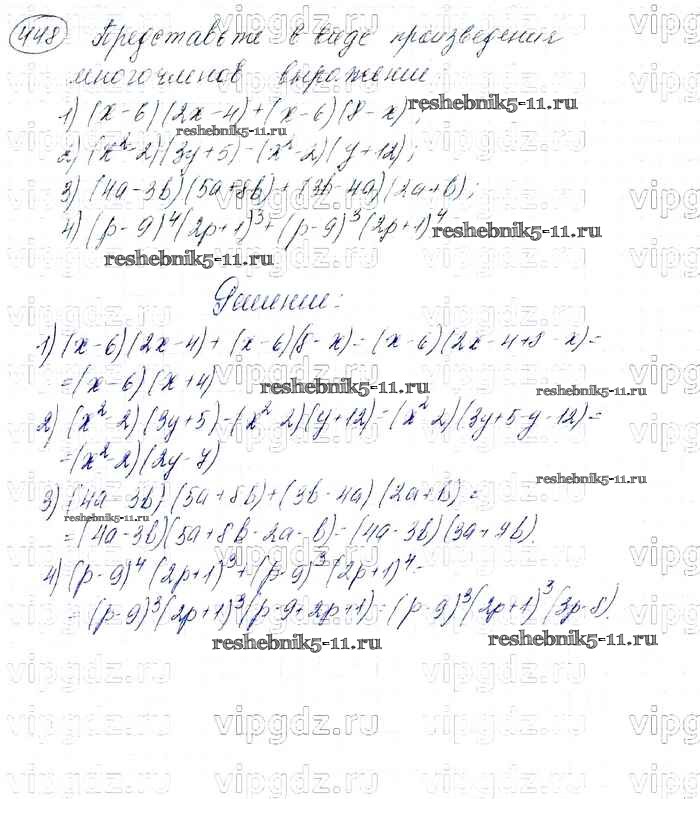 448 Представьте в виде произведения
многочленов выражение
1) (x-6)(2x-4)+(x-6)(8-x);
reshebnik5-11.ru
2) (x²-2)(3y+5)-(x²-2)(y+12);
3) (4a-3b)(5a+8b)+(3b-4a)(2a+b);
4) (p-9)⁴(2p+1)³+(p-9)³(2p+1)⁴
reshebnik5-11.ru
Решение:
1) (x-6)(2x-4)+(x-6)(8-x)=(x-6)(2x-4+8-x)=
=(x-6)(x+4)
reshebnik5-11.ru
2) (x²-2)(3y+5)-(x²-2)(y+12)=(x²-2)(3y+5-y-12)=
=(x²-2)(2y-7)
3) (4a-3b)(5a+8b)+(3b-4a)(2a+b)=
=(4a-3b)(5a+8b-2a-b)=(4a-3b)(3a+7b).
4) (p-9)⁴(2p+1)³+(p-9)³(2p+1)⁴=
=(p-9)³(2p+1)³(p-9+2p+1)=(p-9)³(2p+1)³(3p-8).
reshebnik5-11.ru
vipgdz.ru